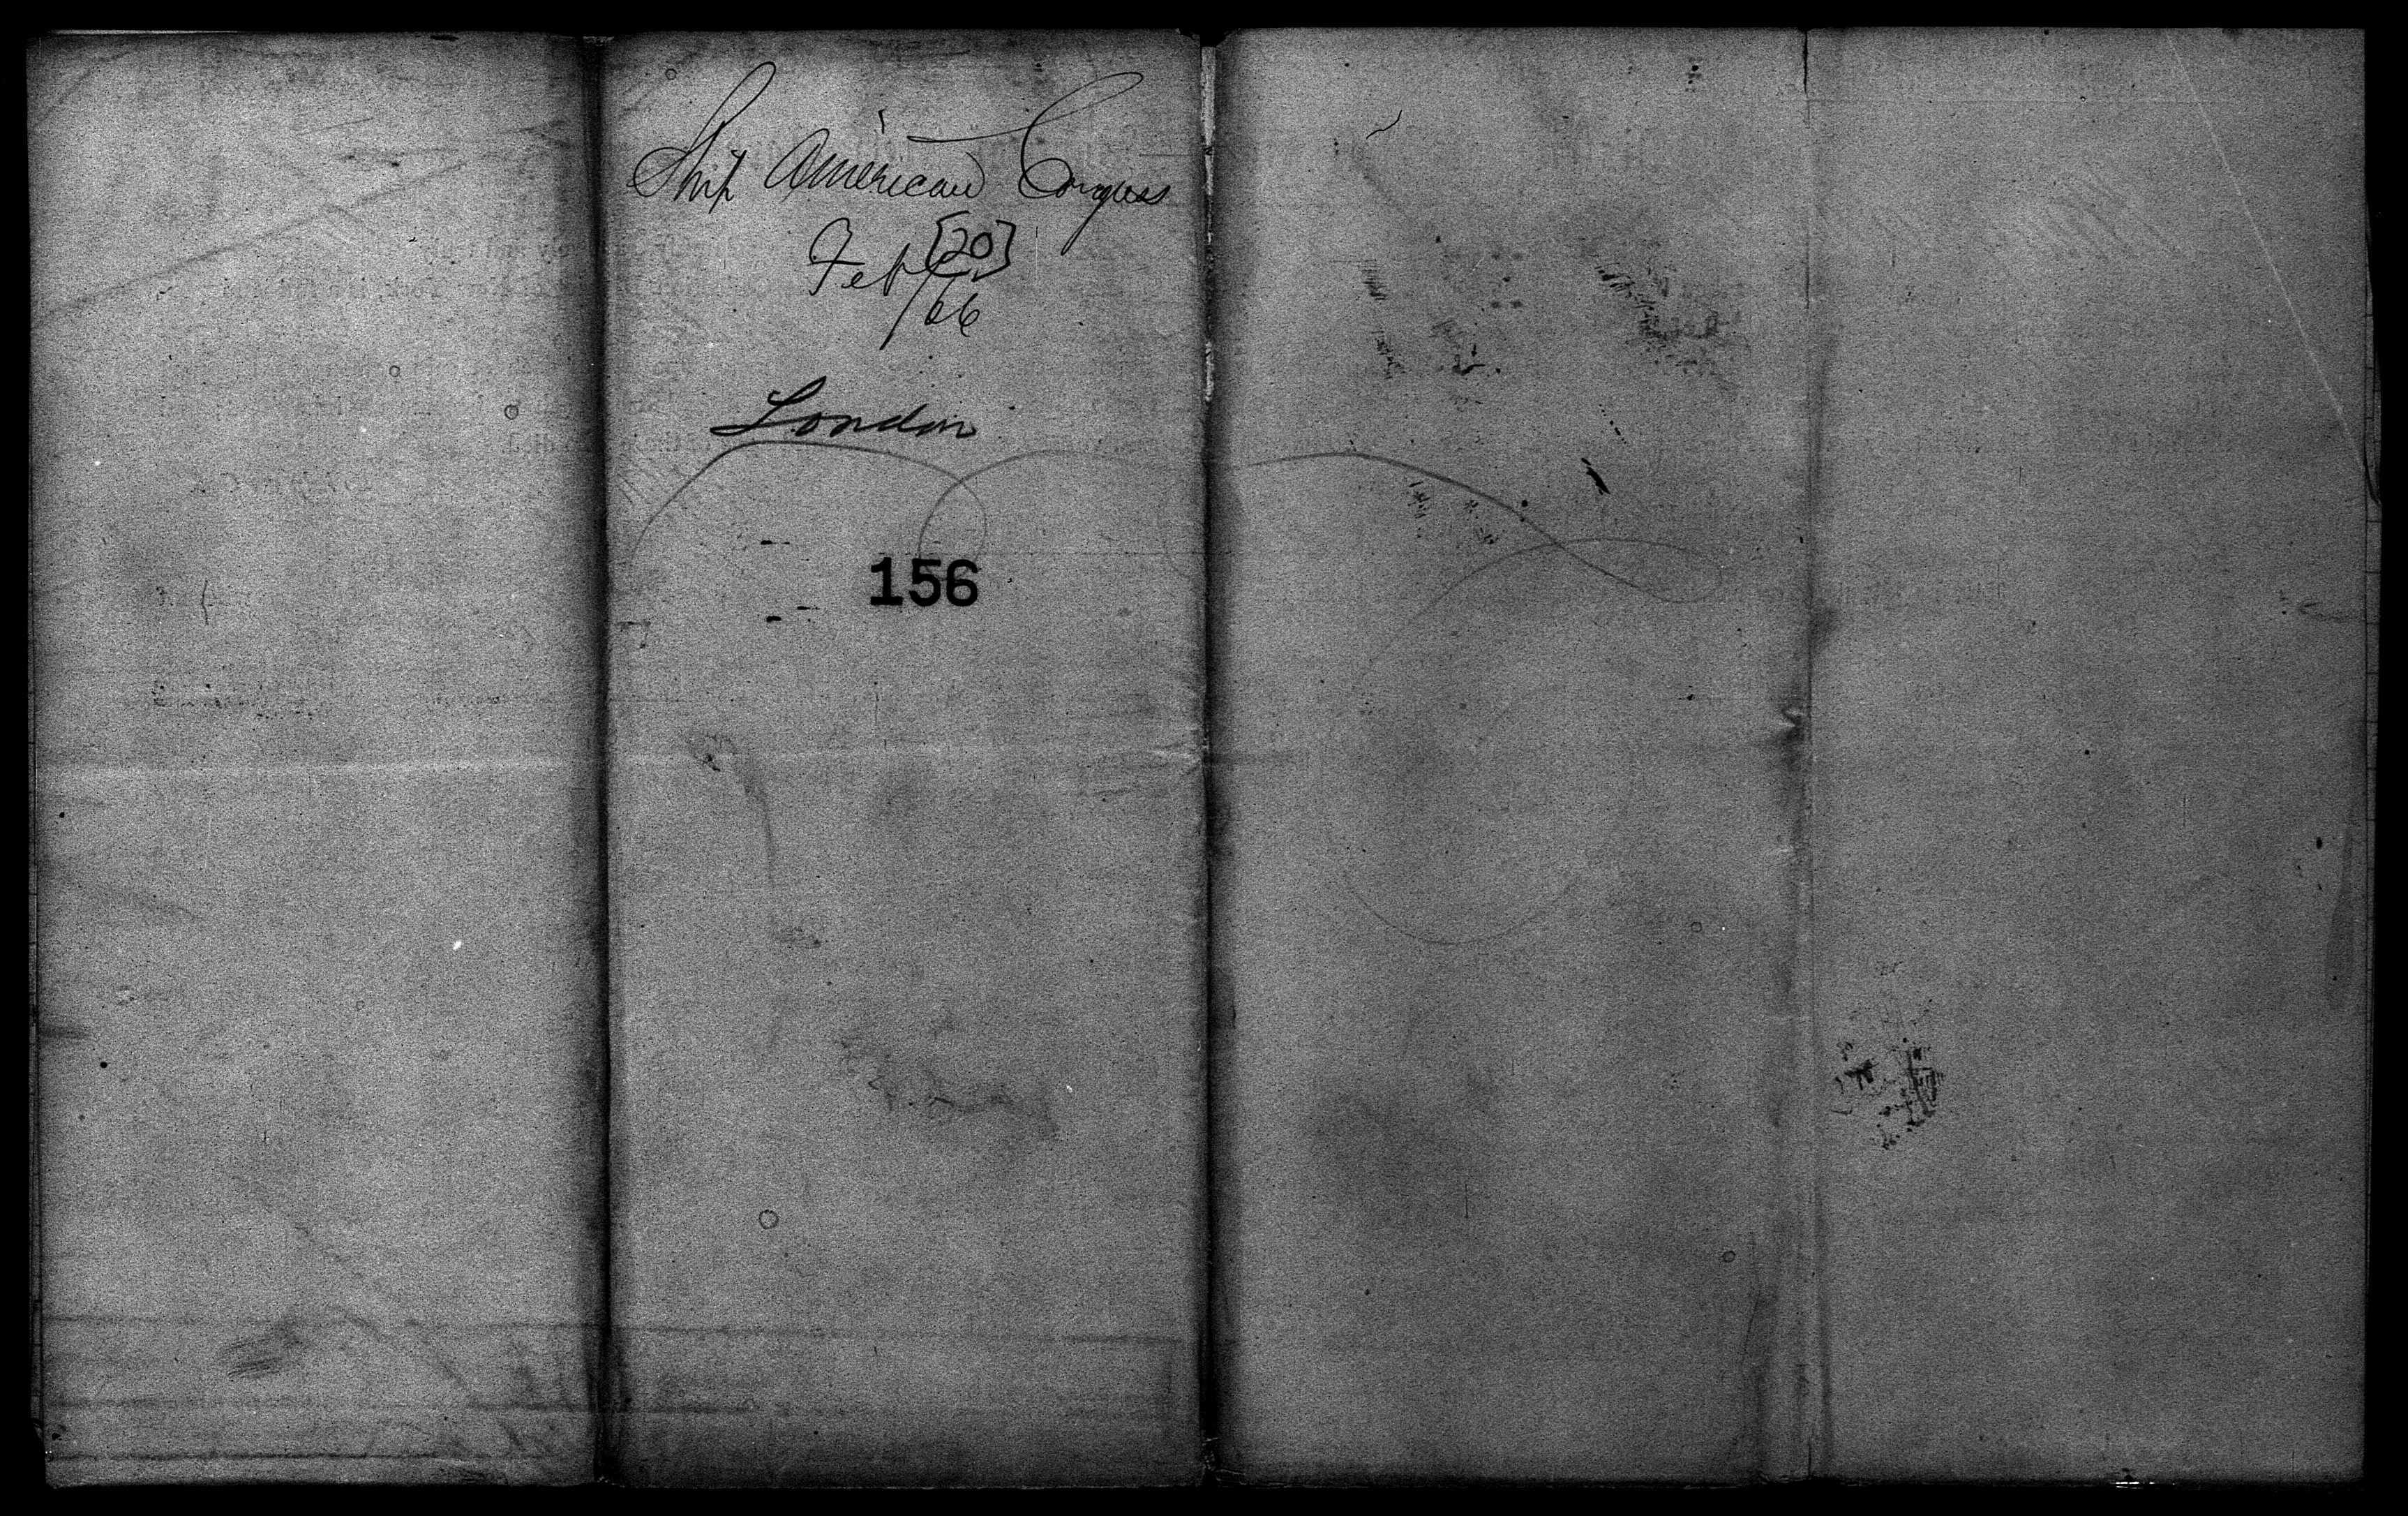 Ship American Congress
Feb [20]
/66
London
156